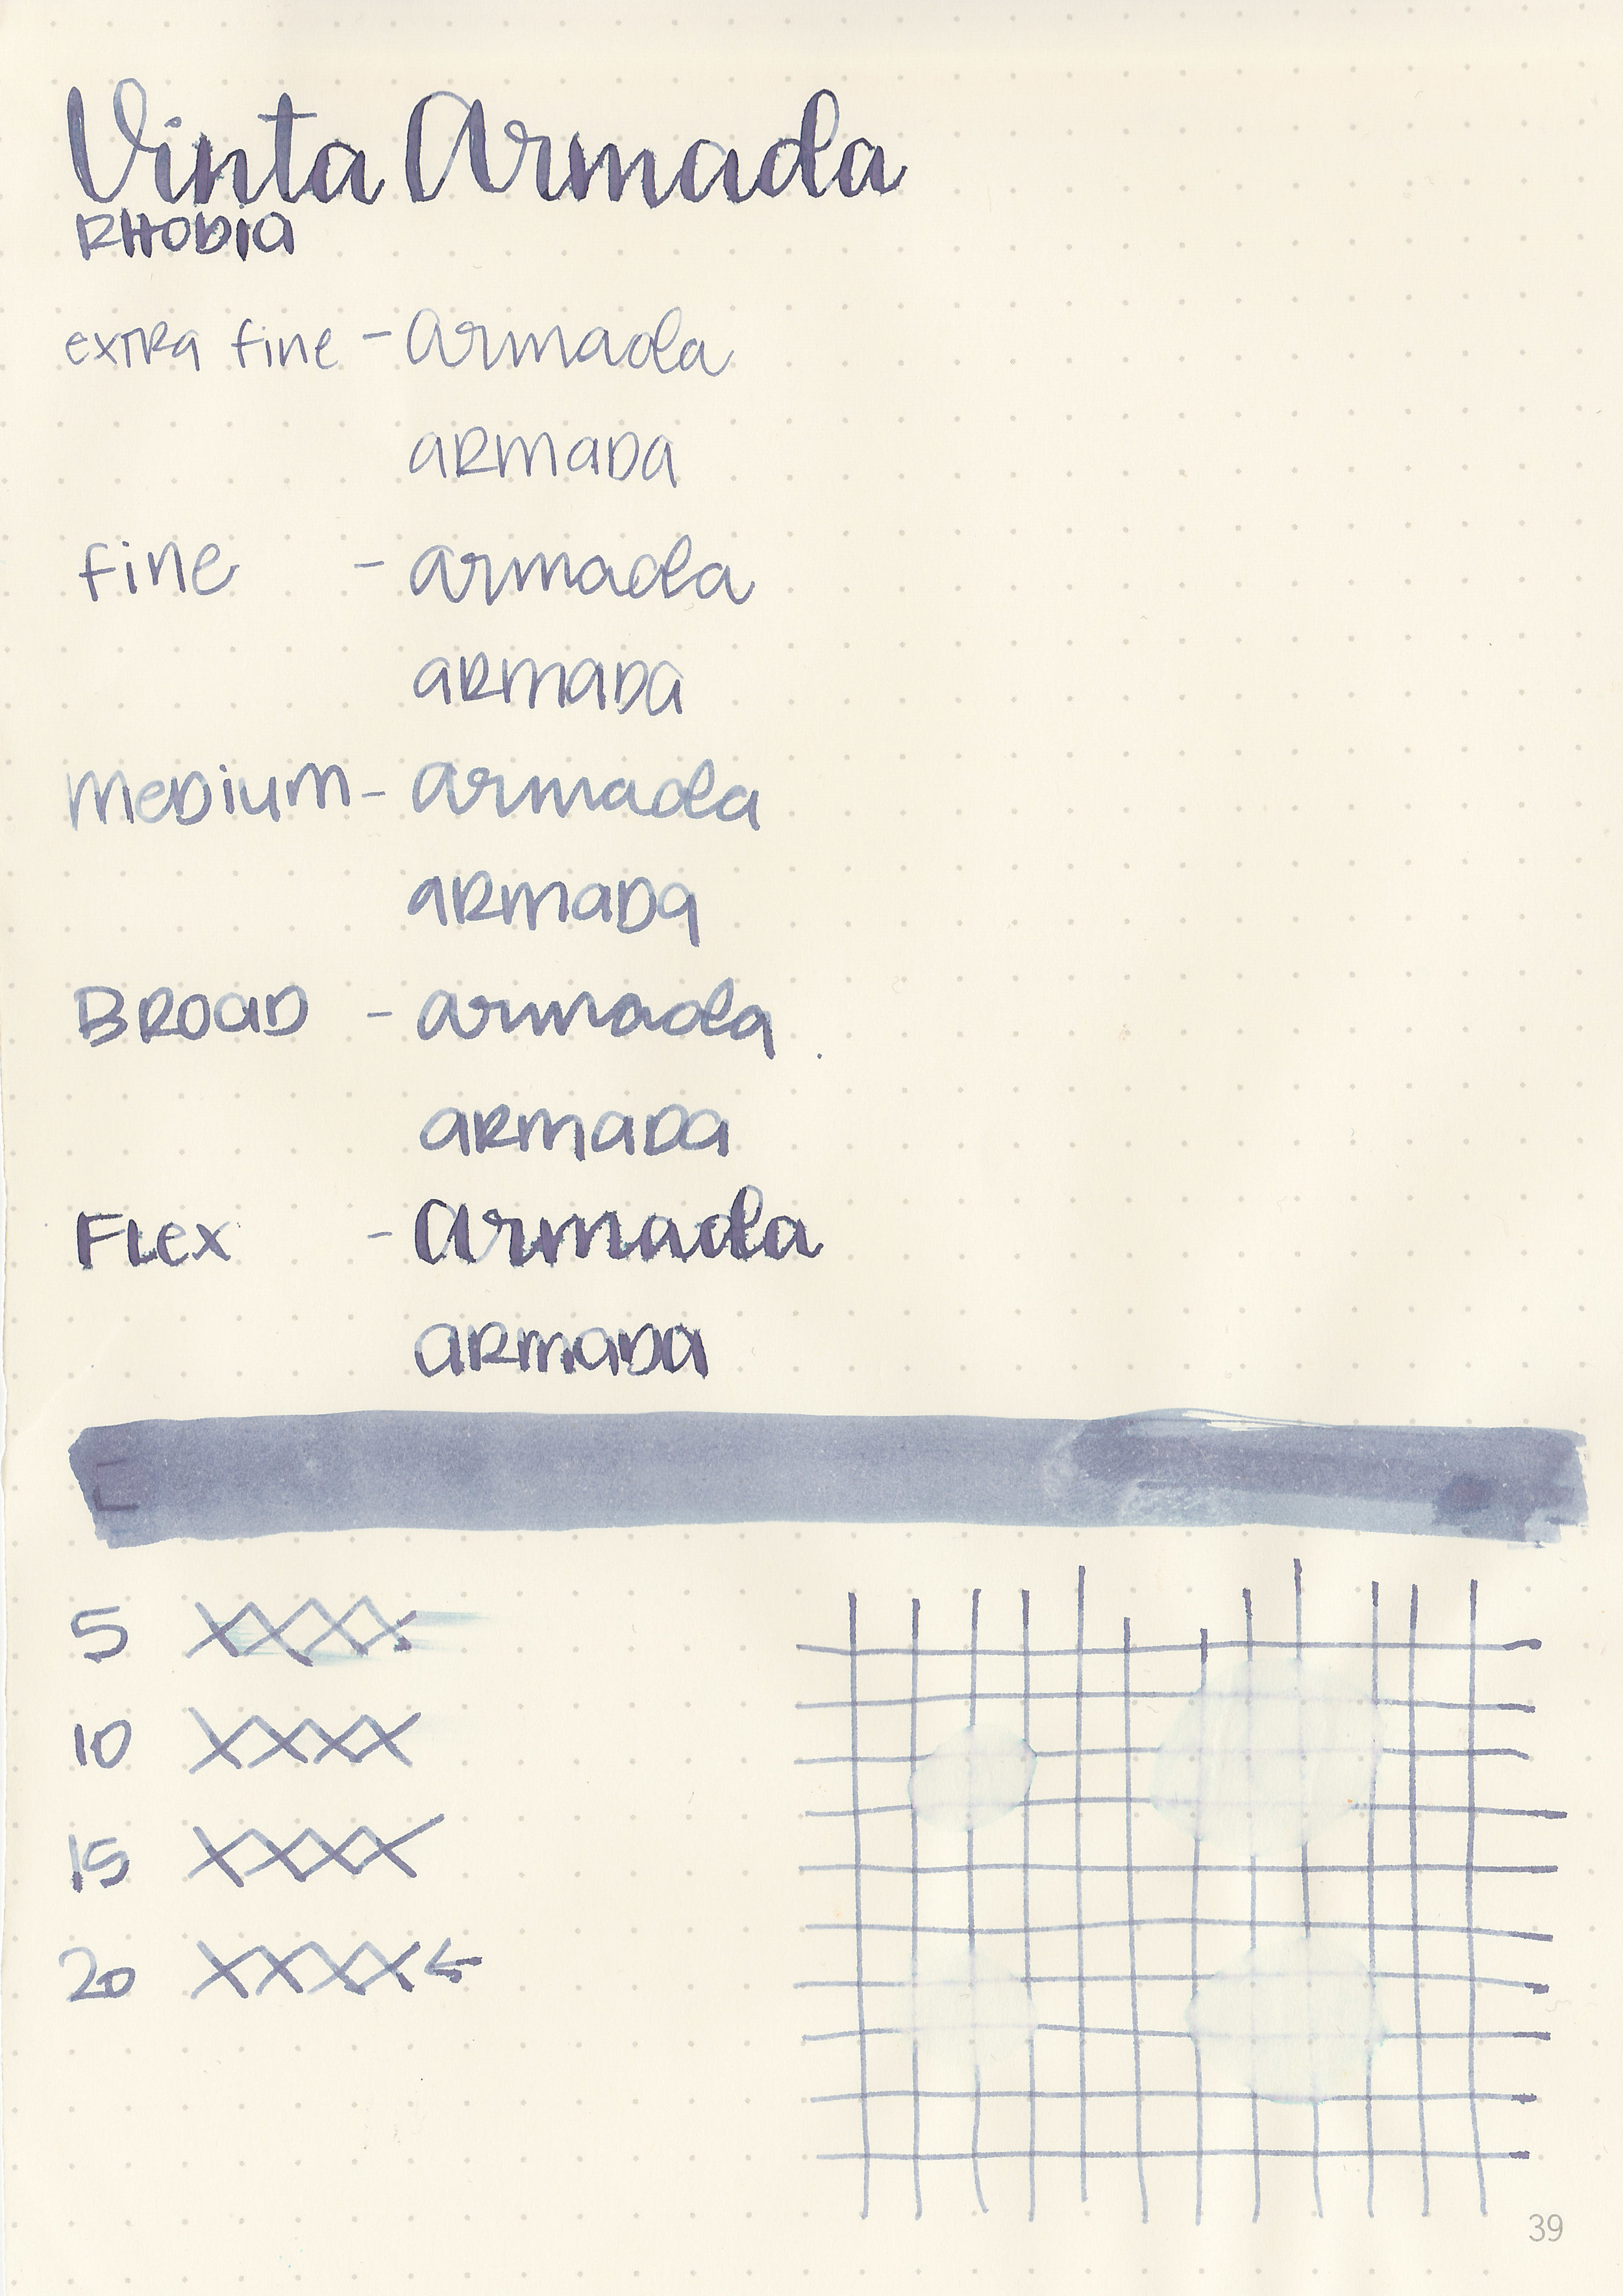 Vinta Armada
RHODIA
extra fine - armada
armada
fine - armada
armada
medium - armada
armada
Broad - armada
armada
Flex - armada
armada
5 XXXX
10 XXXX
15 XXXX
20 XXXX←
39